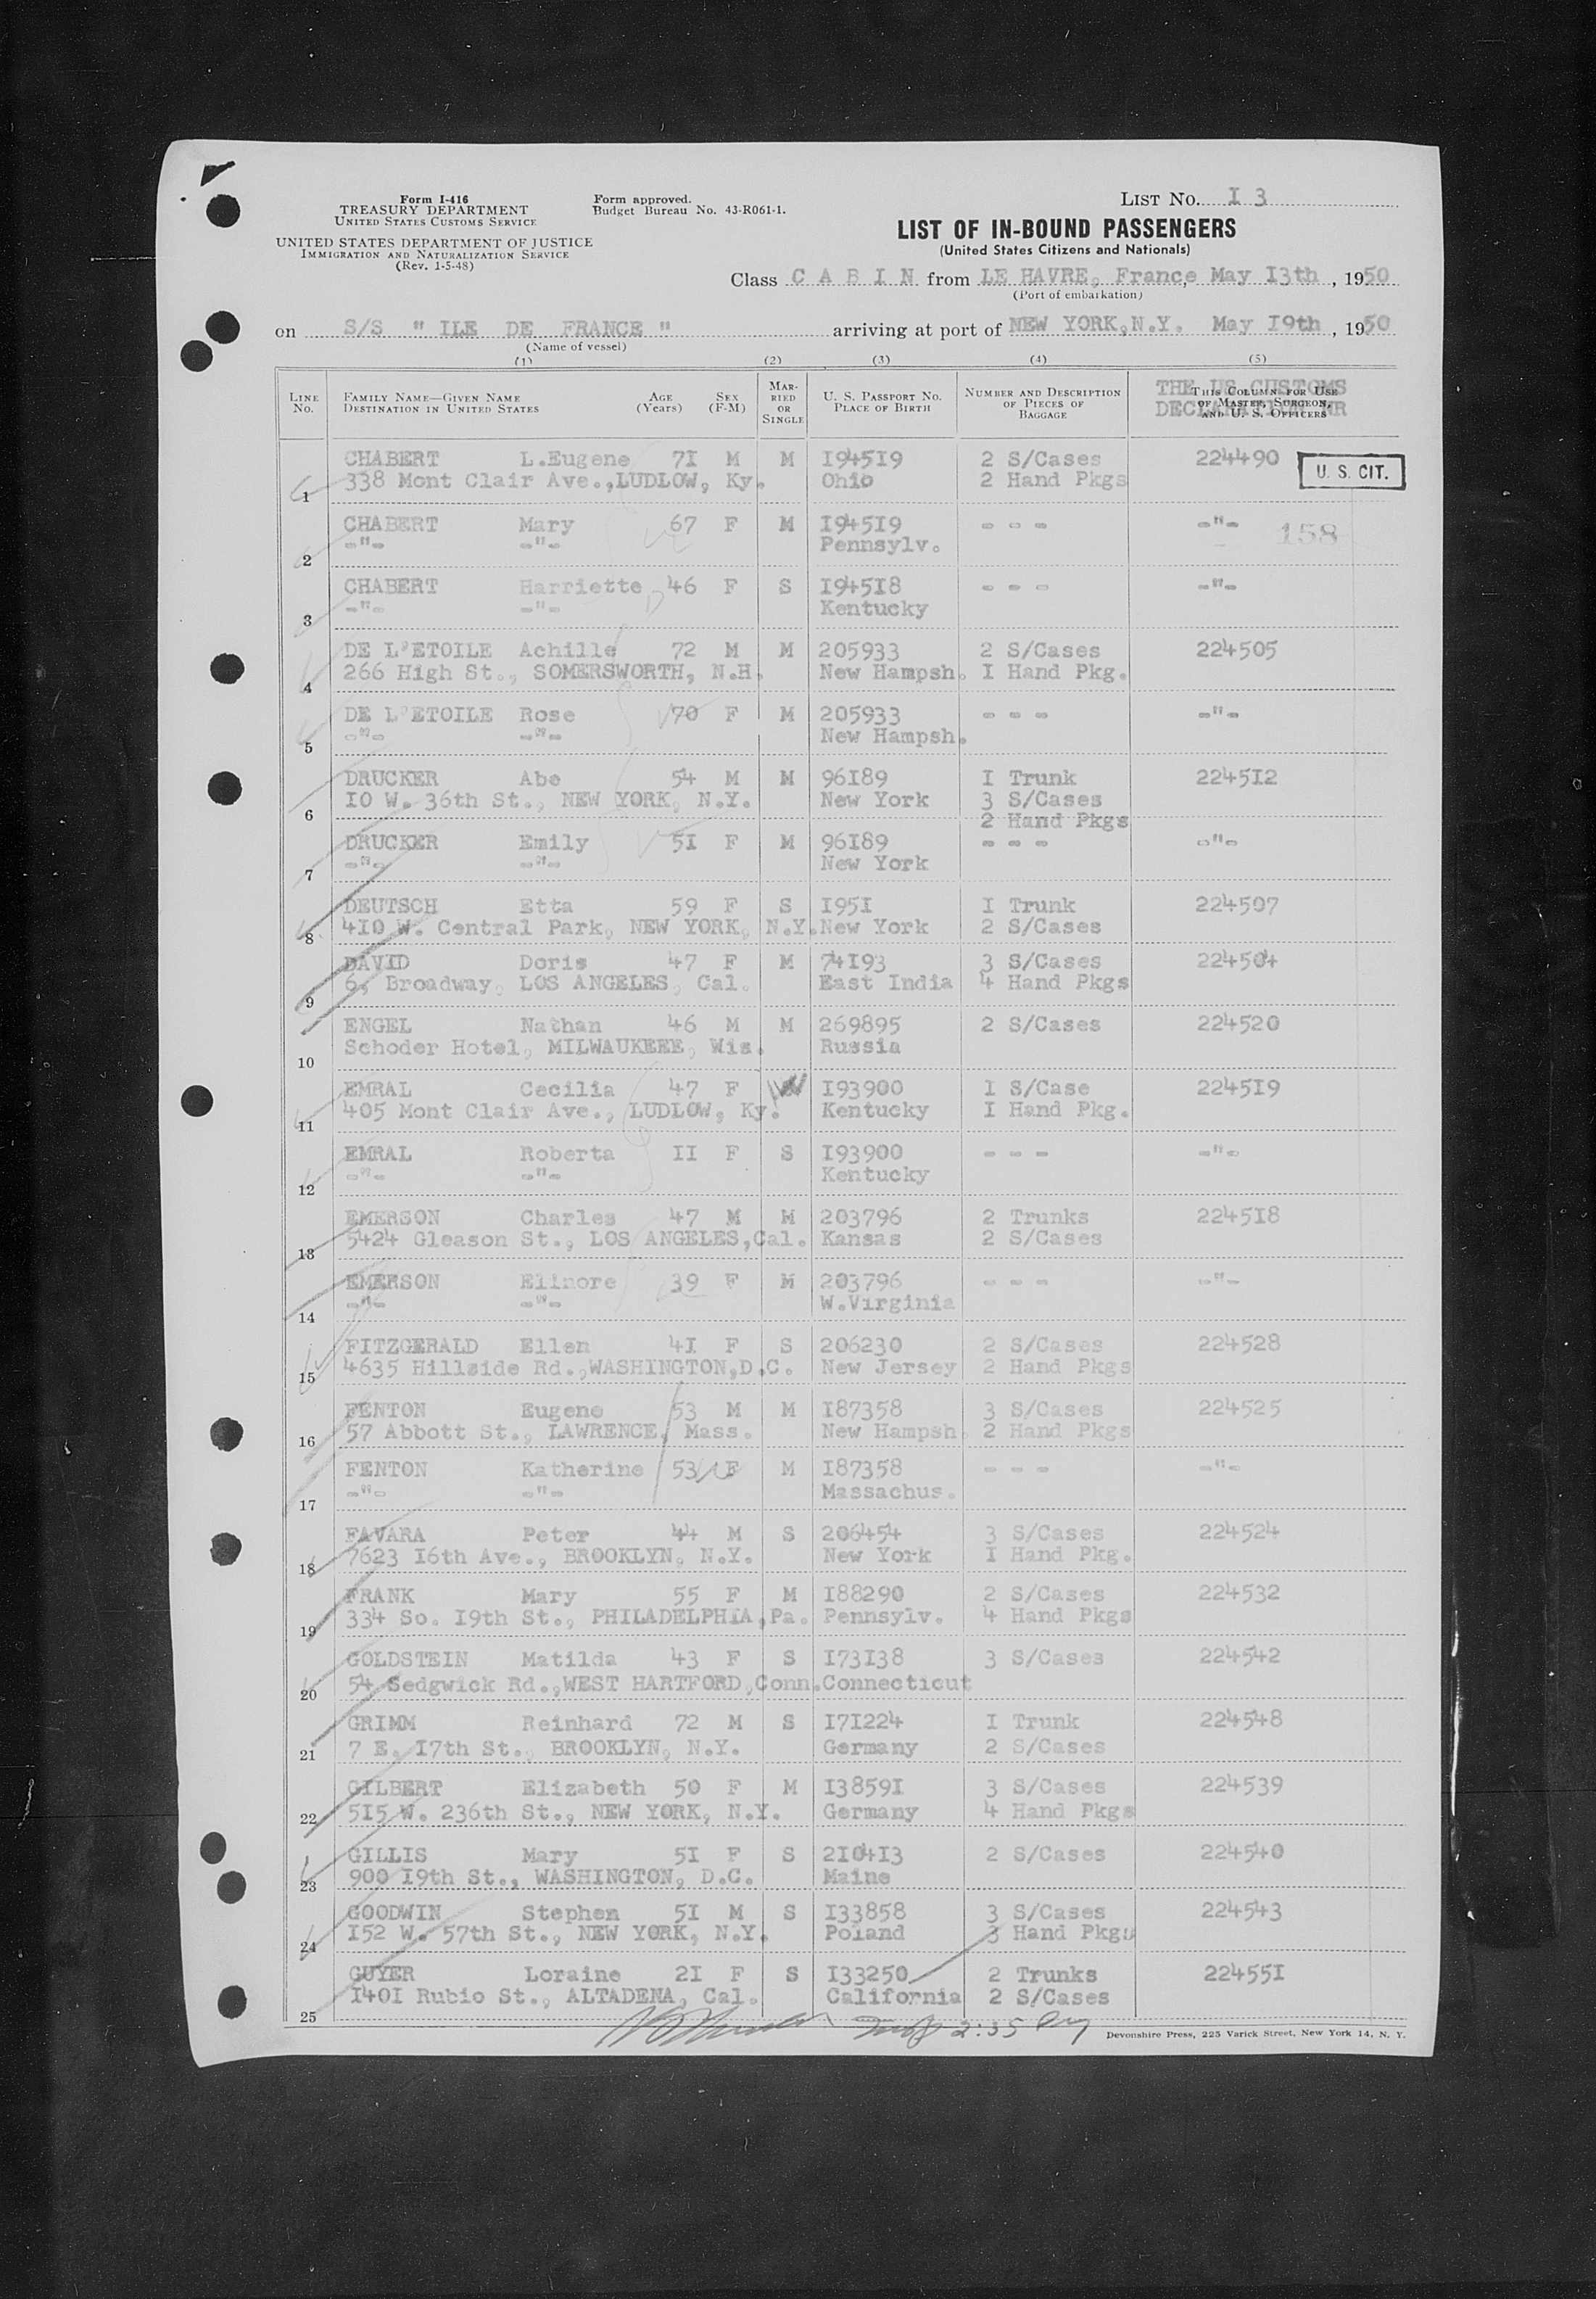 Form I-416
TREASURY DEPARTMENT
UNITED STATES CUSTOMS SERVICE
UNITED STATES DEPARTMENT OF JUSTICE
IMMIGRATION AND NATURALIZATION SERVICE
(Rev. 1-5-48)
Form approved.
Budget Bureau No. 43-R061-1.
LIST NO. I 3
LIST OF IN-BOUND PASSENGERS
(United States Citizens and Nationals)
Class C A B I N from LE HAVRE, France, May I3th, 1950
(Port of embarkation)
on S/S " ILE DE FRANCE " arriving at port of NEW YORK,N.Y. May I9th, 1950
(Name of vessel)
(1) (2) (3) (4) (5)
LINE NO. FAMILY NAME—GIVEN NAME DESTINATION IN UNITED STATES AGE (Years) SEX (F-M) MARRIED OR SINGLE U. S. PASSPORT NO. PLACE OF BIRTH NUMBER AND DESCRIPTION OF PIECES OF BAGGAGE THIS COLUMN FOR USE OF MASTER, SURGEON, AND U. S. OFFICERS
THE US CUSTOMS DECLARATION NR
CHABERT L.Eugene 7I M M I945I9 2 S/Cases 224490
1 338 Mont Clair Ave.,LUDLOW, Ky. Ohio 2 Hand Pkgs U. S. CIT.
CHABERT Mary 67 F M I945I9 - - - -"- 158
2 -"- -"- Pennsylv.
CHABERT Harriette 46 F S I945I8 - - - -"-
3 -"- -"- Kentucky
DE L'ETOILE Achille 72 M M 205933 2 S/Cases 224505
4 266 High St., SOMERSWORTH, N.H. New Hampsh. I Hand Pkg.
DE L'ETOILE Rose 70 F M 205933 - - - -"-
5 -"- -"- New Hampsh.
DRUCKER Abe 54 M M 96I89 I Trunk 2245I2
6 I0 W. 36th St., NEW YORK, N.Y. New York 3 S/Cases
2 Hand Pkgs
DRUCKER Emily 5I F M 96I89 - - - -"-
7 -"- -"- New York
DEUTSCH Etta 59 F S I95I I Trunk 224507
8 4I0 W. Central Park, NEW YORK, N.Y. New York 2 S/Cases
DAVID Doris 47 F M 74I93 3 S/Cases 224504
9 6, Broadway, LOS ANGELES, Cal. East India 4 Hand Pkgs
ENGEL Nathan 46 M M 269895 2 S/Cases 224520
10 Schoder Hotel, MILWAUKEEE, Wis. Russia
EMRAL Cecilia 47 F I93900 I S/Case 2245I9
11 405 Mont Clair Ave., LUDLOW, Ky. Kentucky I Hand Pkg.
EMRAL Roberta II F S I93900 - - - -"-
12 -"- -"- Kentucky
EMERSON Charles 47 M M 203796 2 Trunks 2245I8
13 5424 Gleason St., LOS ANGELES,Cal. Kansas 2 S/Cases
EMERSON Elinore 39 F M 203796 - - - -"-
14 -"- -"- W.Virginia
FITZGERALD Ellen 4I F S 206230 2 S/Cases 224528
15 4635 Hillside Rd.,WASHINGTON,D.C. New Jersey 2 Hand Pkgs
FENTON Eugene 53 M M I87358 3 S/Cases 224525
16 57 Abbott St., LAWRENCE, Mass. New Hampsh. 2 Hand Pkgs
FENTON Katherine 53 F M I87358 - - - -"-
17 -"- -"- Massachus.
FAVARA Peter 44 M S 206454 3 S/Cases 224524
18 7623 I6th Ave., BROOKLYN, N.Y. New York I Hand Pkg.
FRANK Mary 55 F M I88290 2 S/Cases 224532
19 334 So. I9th St., PHILADELPHIA,Pa. Pennsylv. 4 Hand Pkgs
GOLDSTEIN Matilda 43 F S I73I38 3 S/Cases 224542
20 54 Sedgwick Rd.,WEST HARTFORD,Conn. Connecticut
GRIMM Reinhard 72 M S I7I224 I Trunk 224548
21 7 E. I7th St., BROOKLYN, N.Y. Germany 2 S/Cases
GILBERT Elizabeth 50 F M I3859I 3 S/Cases 224539
22 5I5 W. 236th St., NEW YORK, N.Y. Germany 4 Hand Pkgs
GILLIS Mary 5I F S 2I04I3 2 S/Cases 224540
23 900 I9th St., WASHINGTON, D.C. Maine
GOODWIN Stephen 5I M S I33858 3 S/Cases 224543
24 I52 W. 57th St., NEW YORK, N.Y. Poland 3 Hand Pkgs
GUYER Loraine 2I F S I33250 2 Trunks 22455I
25 I40I Rubio St., ALTADENA, Cal. California 2 S/Cases
2:35
Devonshire Press, 225 Varick Street, New York 14, N. Y.